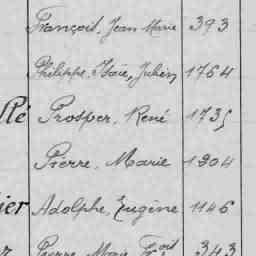 François, Jean Marie 393
Philippe, Isaïe, Julien 1764
Prosper, René 1735
Pierre, Marie 1904
ier Adolphe, Eugène 1146
Pierre, Marie, Fçois 343